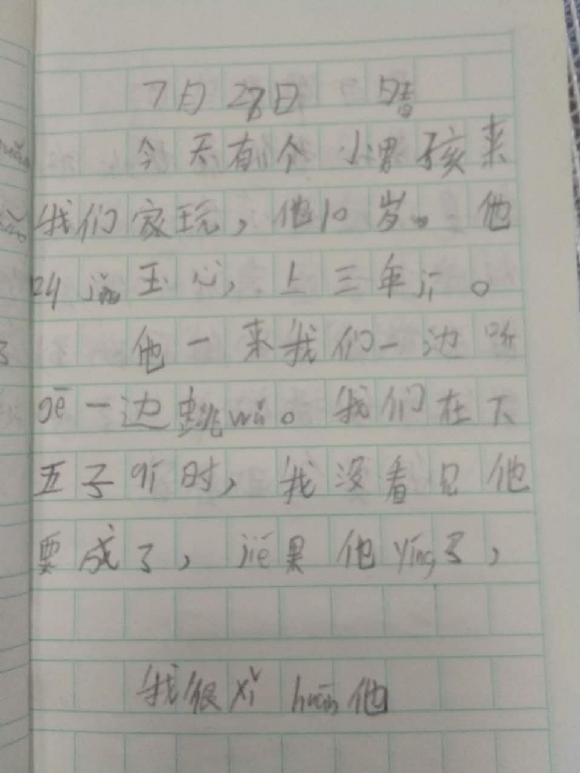 7月28日 晴
今天有个小男孩来
我们家玩，他10岁。他
叫 玉心，上三年jí。
他一来我们一边听
gē一边跳wǔ。我们在下
五子qí时，我没看见他
要成了，jié果他yíng了，
我很xǐ huān他